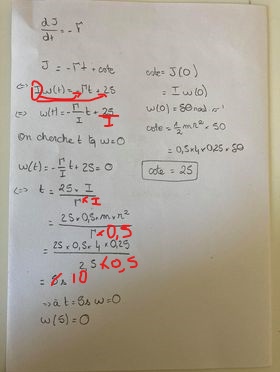 dJ/dt = -Γ
J = -Γt + cste
<=> Iω(t) = -Γt + 25
=> ω(t) = -Γ/I t + 25/I
On cherche t tq ω=0
ω(t) = -Γ/I t + 25 = 0
<=> t = 25 × I / Γ × I
= 25 × 0,5 × m × r² / Γ × 0,5
= 25 × 0,5 × 4 × 0,25 / 2,5 × 0,5
= 5s 10
=> à t = 5s ω = 0
ω(5) = 0
cste = J(0)
= I ω(0)
ω(0) = 50 rad.s⁻¹
cste = 1/2 mr² × 50
= 0,5×4×0,25×50
cste = 25